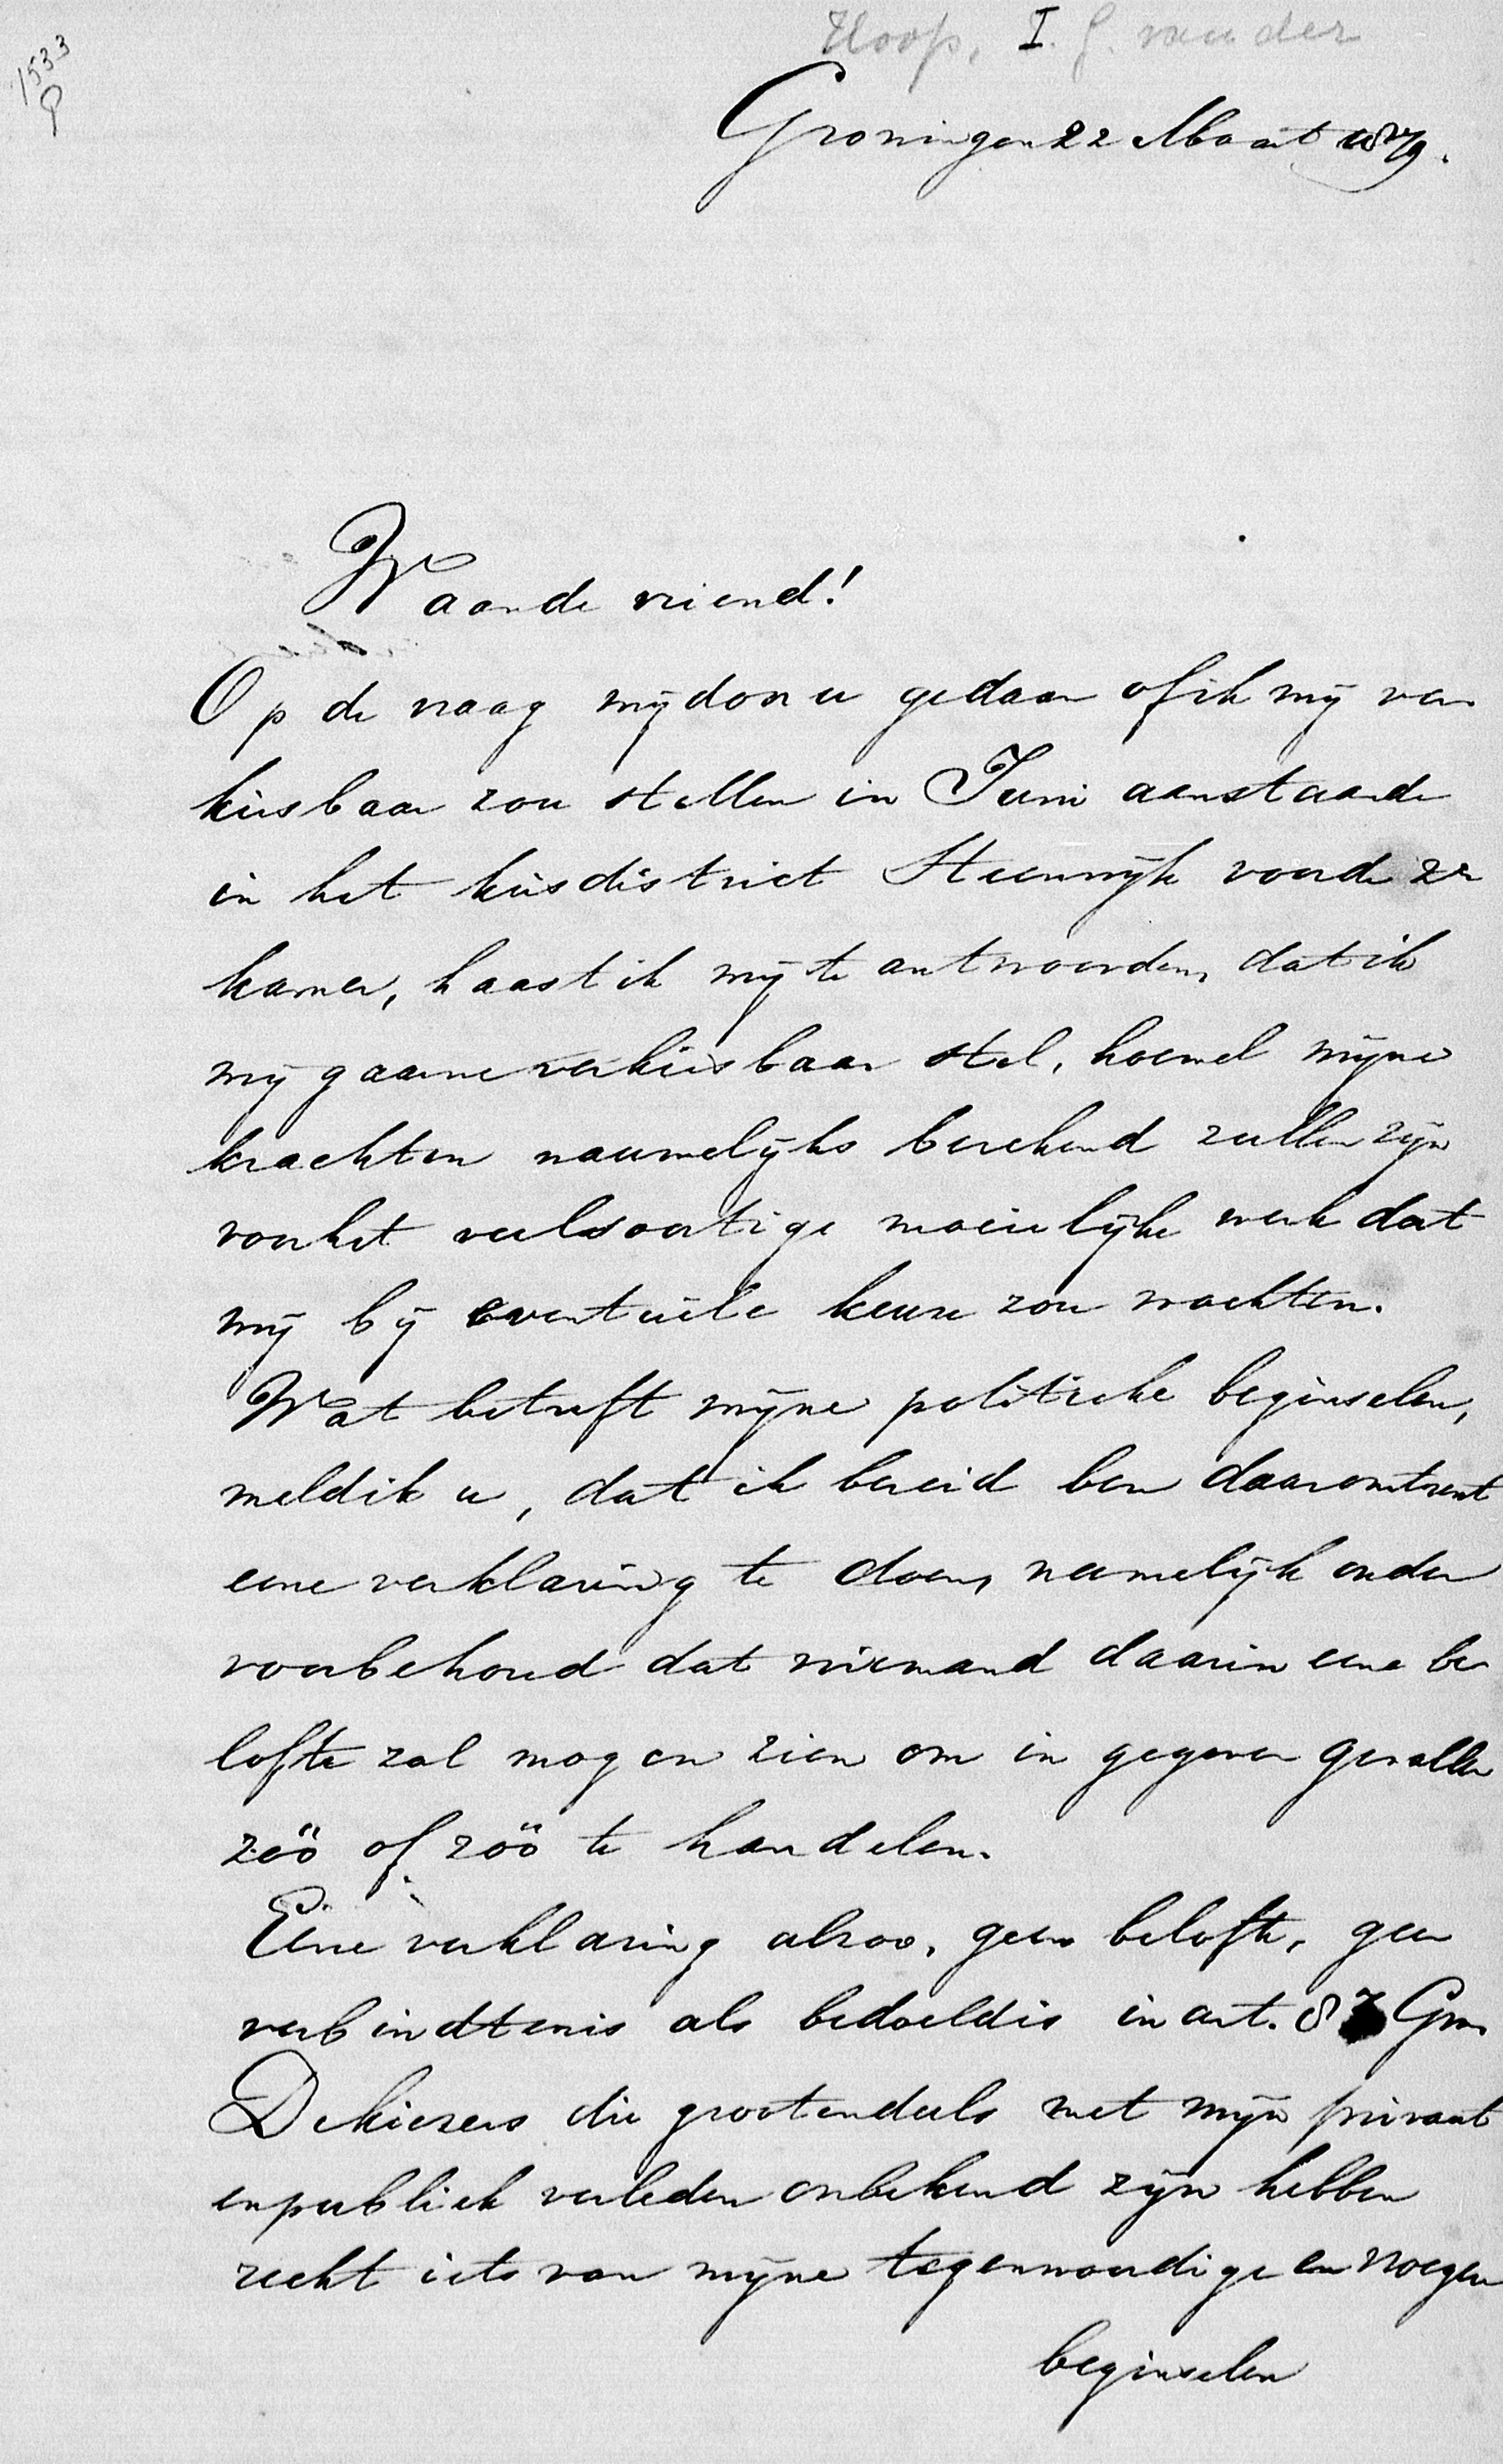 1533
Hoop, I. G. van der
Groningen 22 Maart 1879.
Waarde vriend!
Op de vraag mij door u gedaan of ik mij ver
kiesbaar zou stellen in Juni aanstaande
in het kiesdistrict Steenwijk voor de 2e
kamer, haast ik mij te antwoorden, dat ik
mij gaarne verkiesbaar stel, hoewel mijne
krachten nauwelijks berekend zullen zijn
voor het veelsoortige moeielijke werk dat
mij bij eventuële keuze zou wachten.
Wat betreft mijne politieke beginselen,
meld ik u, dat ik bereid ben daaromtrent
eene verklaring te doen, namelijk onder
voorbehoud dat niemand daarin eene be
lofte zal mogen zien om in gegeven gevallen
zóó of zóó te handelen.
Eene verklaring alzoo, geen belofte, geen
verbindtenis als bedoeld is in art. 87 Grw.
De kiezers die grootendeels met mijn privaat
en publiek verleden onbekend zijn hebben
recht iets van mijne tegenwoordige en vroegere
beginselen